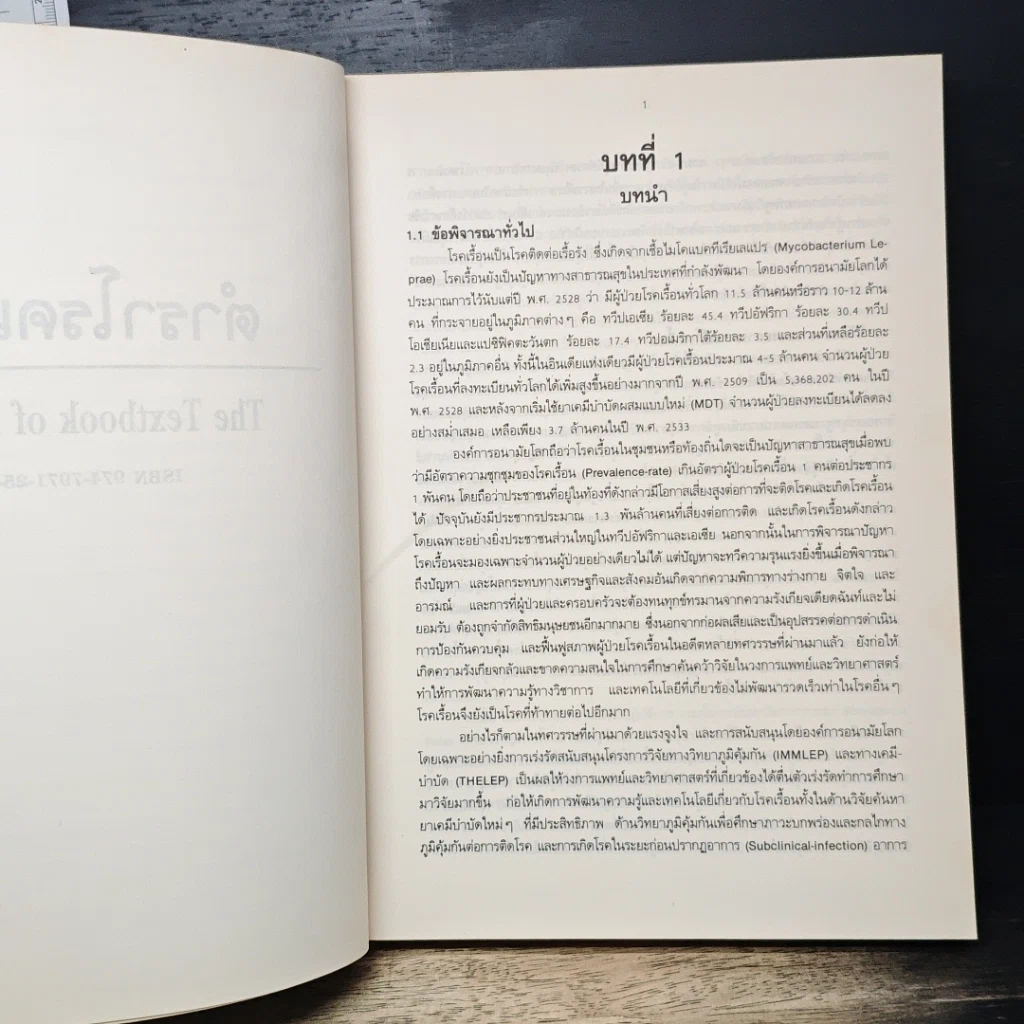 1
บทที่ 1
บทนำ
1.1 ข้อพิจารณาทั่วไป
โรคเรื้อนเป็นโรคติดต่อเรื้อรัง ซึ่งเกิดจากเชื้อไมโคแบคทีเรียเลแปร (Mycobacterium Le-
prae) โรคเรื้อนยังเป็นปัญหาทางสาธารณสุขในประเทศที่กำลังพัฒนา โดยองค์การอนามัยโลกได้
ประมาณการไว้นับแต่ปี พ.ศ. 2528 ว่า มีผู้ป่วยโรคเรื้อนทั่วโลก 11.5 ล้านคนหรือราว 10-12 ล้าน
คน ที่กระจายอยู่ในภูมิภาคต่างๆ คือ ทวีปเอเซีย ร้อยละ 45.4 ทวีปอัฟริกา ร้อยละ 30.4 ทวีป
โอเชียเนียและแปซิฟิคตะวันตก ร้อยละ 17.4 ทวีปอเมริกาใต้ร้อยละ 3.5 และส่วนที่เหลือร้อยละ
2.3 อยู่ในภูมิภาคอื่น ทั้งนี้ในอินเดียแห่งเดียวมีผู้ป่วยโรคเรื้อนประมาณ 4-5 ล้านคน จำนวนผู้ป่วย
โรคเรื้อนที่ลงทะเบียนทั่วโลกได้เพิ่มสูงขึ้นอย่างมากจากปี พ.ศ. 2509 เป็น 5,368,202 คน ในปี
พ.ศ. 2528 และหลังจากเริ่มใช้ยาเคมีบำบัดผสมแบบใหม่ (MDT) จำนวนผู้ป่วยลงทะเบียนได้ลดลง
อย่างสม่ำเสมอ เหลือเพียง 3.7 ล้านคนในปี พ.ศ. 2533
องค์การอนามัยโลกถือว่าโรคเรื้อนในชุมชนหรือท้องถิ่นใดจะเป็นปัญหาสาธารณสุขเมื่อพบ
ว่ามีอัตราความชุกชุมของโรคเรื้อน (Prevalence-rate) เกินอัตราผู้ป่วยโรคเรื้อน 1 คนต่อประชากร
1 พันคน โดยถือว่าประชาชนที่อยู่ในท้องที่ดังกล่าวมีโอกาสเสี่ยงสูงต่อการที่จะติดโรคและเกิดโรคเรื้อน
ได้ ปัจจุบันยังมีประชากรประมาณ 1.3 พันล้านคนที่เสี่ยงต่อการติด และเกิดโรคเรื้อนดังกล่าว
โดยเฉพาะอย่างยิ่งประชาชนส่วนใหญ่ในทวีปอัฟริกาและเอเซีย นอกจากนั้นในการพิจารณาปัญหา
โรคเรื้อนจะมองเฉพาะจำนวนผู้ป่วยอย่างเดียวไม่ได้ แต่ปัญหาจะทวีความรุนแรงยิ่งขึ้นเมื่อพิจารณา
ถึงปัญหา และผลกระทบทางเศรษฐกิจและสังคมอันเกิดจากความพิการทางร่างกาย จิตใจ และ
อารมณ์ และการที่ผู้ป่วยและครอบครัวจะต้องทนทุกข์ทรมานจากความรังเกียจเดียดฉันท์และไม่
ยอมรับ ต้องถูกจำกัดสิทธิมนุษยชนอีกมากมาย ซึ่งนอกจากก่อผลเสียและเป็นอุปสรรคต่อการดำเนิน
การป้องกันควบคุม และฟื้นฟูสภาพผู้ป่วยโรคเรื้อนในอดีตหลายทศวรรษที่ผ่านมาแล้ว ยังก่อให้
เกิดความรังเกียจกลัวและขาดความสนใจในการศึกษาค้นคว้าวิจัยในวงการแพทย์และวิทยาศาสตร์
ทำให้การพัฒนาความรู้ทางวิชาการ และเทคโนโลยีที่เกี่ยวข้องไม่พัฒนารวดเร็วเท่าในโรคอื่นๆ
โรคเรื้อนจึงยังเป็นโรคที่ท้าทายต่อไปอีกมาก
อย่างไรก็ตามในทศวรรษที่ผ่านมาด้วยแรงจูงใจ และการสนับสนุนโดยองค์การอนามัยโลก
โดยเฉพาะอย่างยิ่งการเร่งรัดสนับสนุนโครงการวิจัยทางวิทยาภูมิคุ้มกัน (IMMLEP) และทางเคมี-
บำบัด (THELEP) เป็นผลให้วงการแพทย์และวิทยาศาสตร์ที่เกี่ยวข้องได้ตื่นตัวเร่งรัดทำการศึกษา
มาวิจัยมากขึ้น ก่อให้เกิดการพัฒนาความรู้และเทคโนโลยีเกี่ยวกับโรคเรื้อนทั้งในด้านวิจัยค้นหา
ยาเคมีบำบัดใหม่ๆ ที่มีประสิทธิภาพ ด้านวิทยาภูมิคุ้มกันเพื่อศึกษาภาวะบกพร่องและกลไกทาง
ภูมิคุ้มกันต่อการติดโรค และการเกิดโรคในระยะก่อนปรากฏอาการ (Subclinical-infection) อาการ